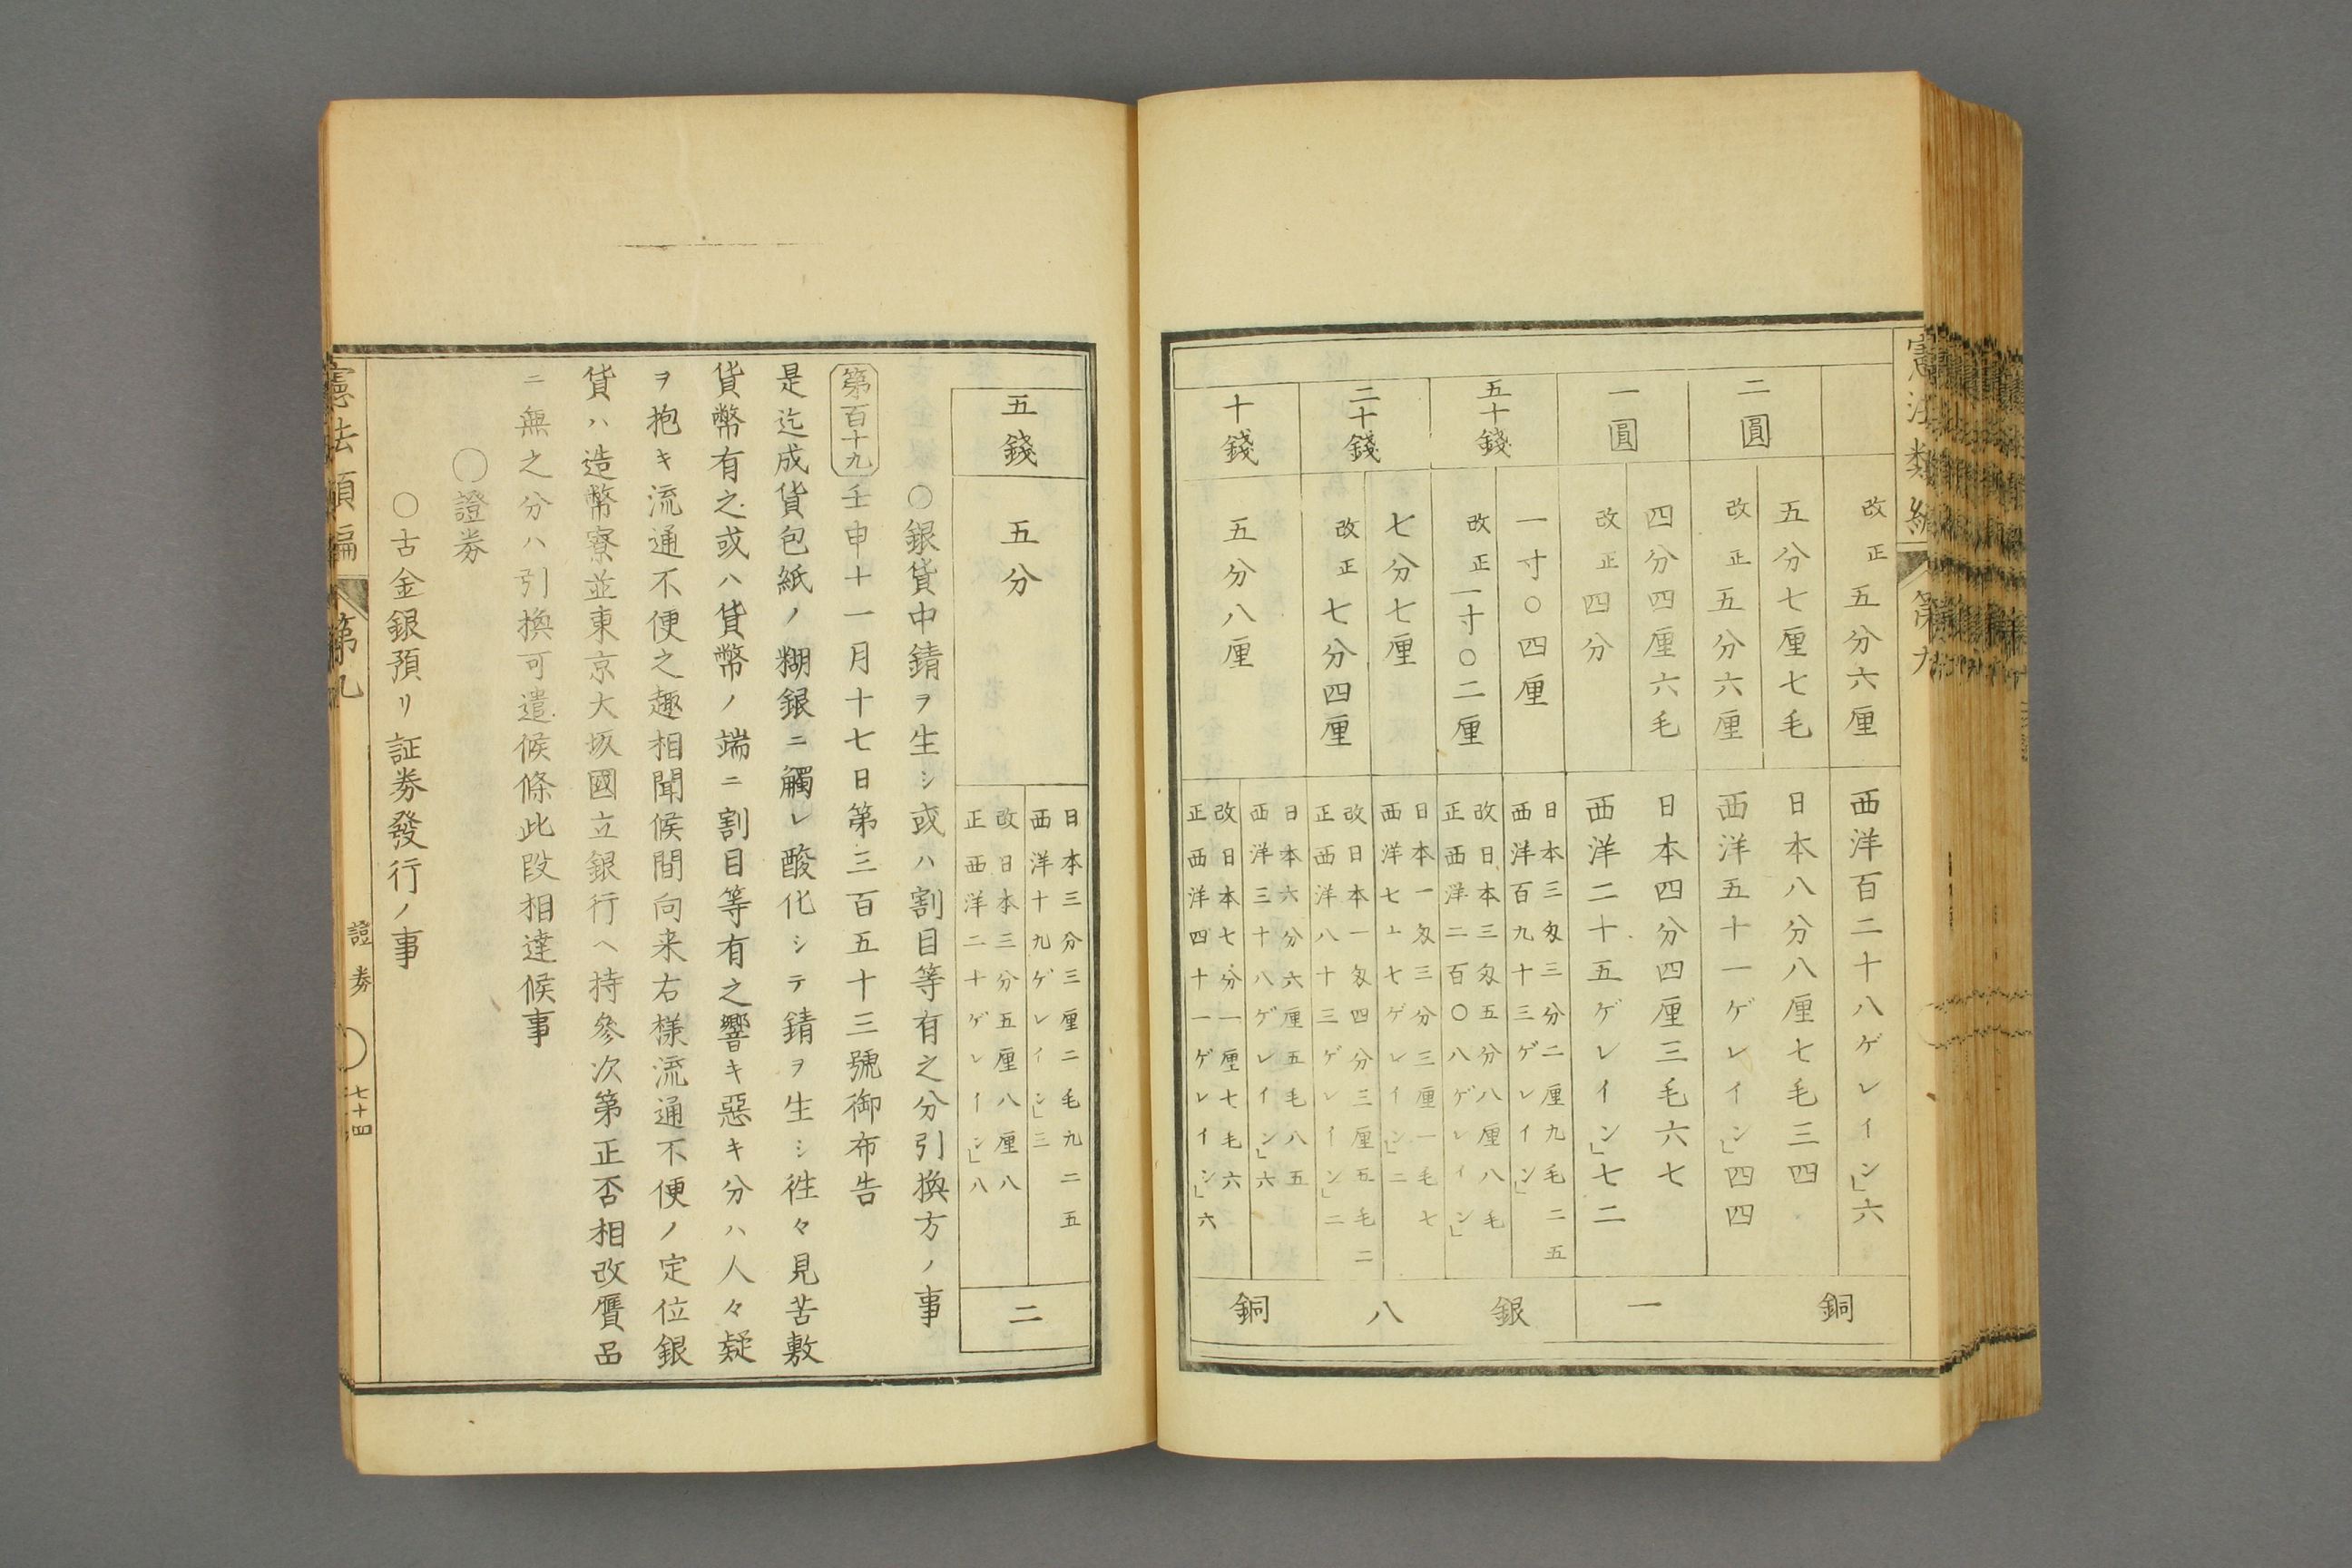 憲法類編
第九
改正五分六厘
西洋百二十八ゲレイン」六
銅
二圓
五分七厘七毛
日本八分八厘七毛三四
改正五分六厘
西洋五十一ゲレイン」四四
一圓
四分四厘六毛
日本四分四厘三毛六七
一
改正四分
西洋二十五ゲレイン」七二
五十錢
一寸〇四厘
日本三匁三分二厘九毛二五
西洋百九十三ゲレイン」
銀
改正一寸〇二厘
改日本三匁五分八厘八毛
正西洋二百〇八ゲレイン」
二十錢
七分七厘
日本一匁三分三厘一毛七
西洋七十七ゲレイン」二
八
改正七分四厘
改日本一匁四分三厘五毛二
正西洋八十三ゲレイン」二
十錢
五分八厘
日本六分六厘五毛八五
西洋三十八ゲレイン」六
銅
改日本七分一厘七毛六
正西洋四十一ゲレイン」六
五錢
五分
日本三分三厘二毛九二五
西洋十九ゲレイン」三
改日本三分五厘八厘八
正西洋二十ゲレイン」八
二
〇銀貨中錆ヲ生シ或ハ割目等有之分引換方ノ事
第百十九壬申十一月十七日第三百五十三號御布告
是迄成貨包紙ノ糊銀ニ觸レ酸化シテ錆ヲ生シ徃々見苦敷
貨幣有之或ハ貨幣ノ端ニ割目等有之響キ惡キ分ハ人々疑
ヲ抱キ流通不便之趣相聞候間向来右様流通不便ノ定位銀
貨ハ造幣寮並東京大坂國立銀行ヘ持參次第正否相改贋品
ニ無之分ハ引換可遣候條此段相達候事
〇證券
〇古金銀預リ証券發行ノ事
憲法類編
第九
證券
〇
七十四